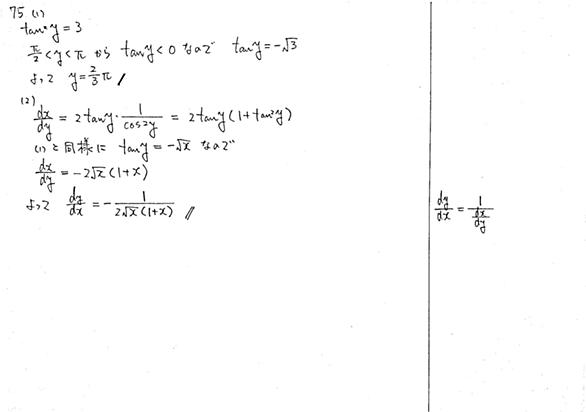 75 (1)
tan²y = 3
π/2 < y < π から tan y < 0 なので tan y = -√3
よって y = 2/3 π //
(2)
dx/dy = 2tan y · 1/cos²y = 2tan y (1 + tan²y)
(1) と同様に tan y = -√x なので
dx/dy = -2√x (1+x)
よって dy/dx = - 1/(2√x (1+x)) //
dy/dx = 1/(dx/dy)